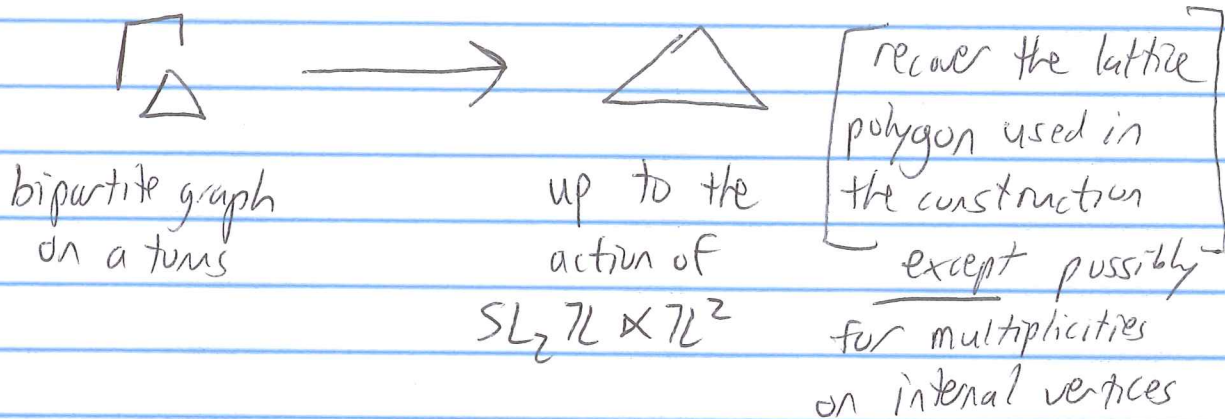 bipartite graph
on a torus
up to the
action of
SL₂ ℤ ⋉ ℤ²
recover the lattice
polygon used in
the construction
except possibly
for multiplicities
on internal vertices